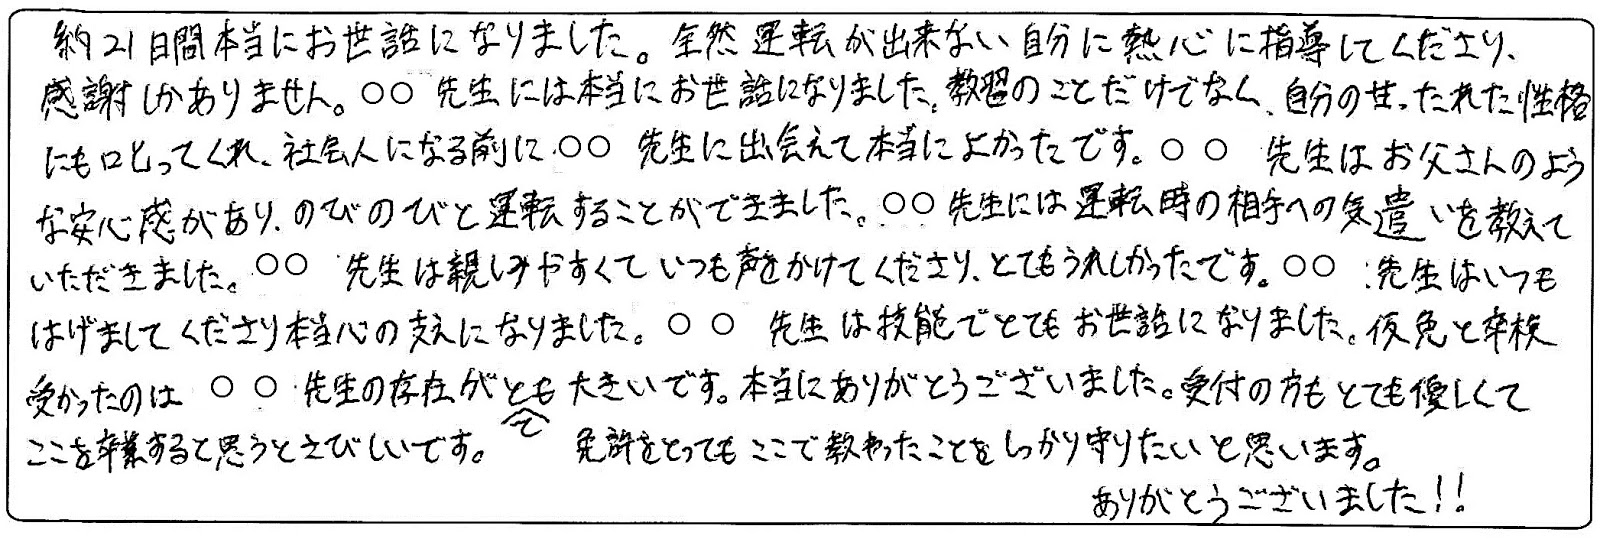 約21日間本当にお世話になりました。全然運転が出来ない自分に熱心に指導してくださり、
感謝しかありません。○○ 先生には本当にお世話になりました。教習のことだけでなく、自分の甘ったれた性格
にも口とってくれ、社会人になる前に○○ 先生に出会えて本当によかったです。○○ 先生はお父さんのよう
な安心感があり、のびのびと運転することができました。○○先生には運転時の相手への気遣いを教えて
いただきました。○○ 先生は親しみやすくていつも声をかけてくださり、とてもうれしかったです。○○ 先生はいつも
はげましてくださり本当心の支えになりました。○○ 先生は技能でとてもお世話になりました。仮免と卒検
受かったのは ○○ 先生の存在がとても大きいです。本当にありがとうございました。受付の方もとても優しくて
ここを卒業すると思うとさびしいです。 免許をとってもここで教わったことをしっかり守りたいと思います。
ありがとうございました!!